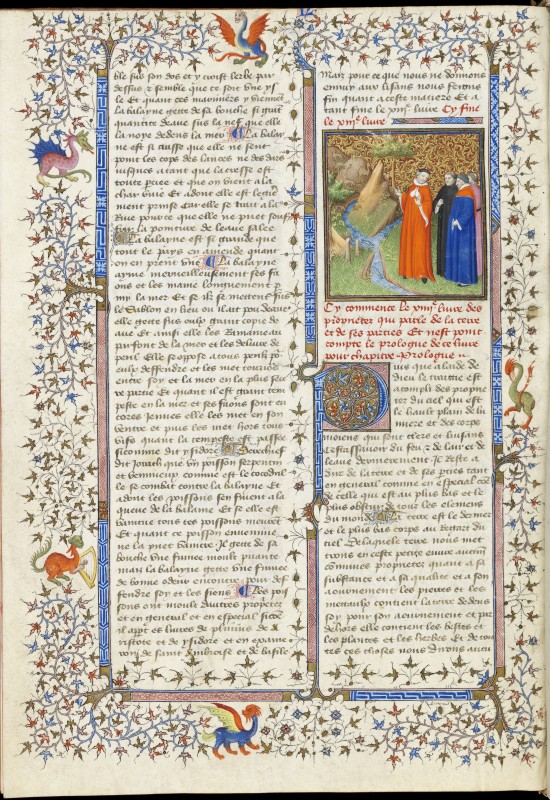 ble sus son dos et y croist herbe par
dessus et semble que ce soit une ys
le Et quant ces maronniers y viennent
La balayne gecte de sa bouche si grant
quantite deaue sus la nef que elle
la noye dedens la mer La balay
ne est si crasse que elle ne sent
point les cops des lances ne des dars
jusques atant que la cresse est
toute percee et que on vient a la
char vive Et adont elle est legie
ment prinse car elle se trait a la
rive pource que elle ne puet souf
frir la pointure de leaue salee
La balayne est si grande que
tout le pays en amende quant
on en prent une La balayne
ayme merveilleusement ses fa
ons et les maine longuement p
my la mer Et se ilz se mettent sus
le Sablon en lieu ou il ait pou deaue
elle gette sus eulx grant copie de
aue Et ainsi elle les ramaine au
parfont de la mer et les delivre de
peril Elle se opose a tous perilz pour
eulx deffendre et les met tousiours
entre soy et la mer en la plus seu
re partie Et quant il est grant tem
peste en la mer et ses faons sont en
cores jennes elle les met en son
ventre et puis les met hors tous
vifs quant la tempeste est passee
sicomme dit ysidore
dit Jorath que un poisson serpentin
et venimeux comme est le cocodril
le se combat contre la balayne Et
adont les poissons sen fuient a la
queue de la balaine Et se elle est
vaincue tous ces poissons meurent
Et quant ce poisson envenime
ne la puet vaincre Il gette de sa
bouche une fumee moult puante
mais la balayne gette une fumee
de bonne odeur encontre pour def
fendre soy et les siens Les pois
sons ont moult dautres proprietez
et en general et en especial sicome
il appert es livres de plinius de a
ristote et de ysidore et en examé
ron de saint ambroise et de basile
Maiz pour ce que nous ne donnons
ennuy aux lisans nous ferons
fin quant a ceste matiere Et a
tant fine le xiiie livre Cy fine
le xiiie livre
Cy commence le xiiiie livre des
proprietez qui parle de la terre
et de ses parties Et nest point
compte le prologue de ce livre
pour chapitre Prologue
Puis que a laide de
Dieu le traittie est
acompli des proprie
tez du ciel qui est
le hault palais de lu
miere et des corps
moiens qui sont clers et luisans
du feu de lair et de
leaue derrenierement Il reste a
dire de la terre et de ses parties tant
en general comme en especial come
de celle qui est au plus bas et le
plus obscur de tous les elemens
du monde La terre est le dernier
et le plus bas corps au regart du
ciel De laquele terre nous met
trons en ceste petite euvre aucunes
communes proprietez quant a sa
substance et a sa qualite et a son
aournement les pierres et les
metaulx contient la terre dedens
soy pour son aournement et par
dehors elle contient les bestes et
les plantes et les herbes Et de tou
tes ces choses nous dirons aucu